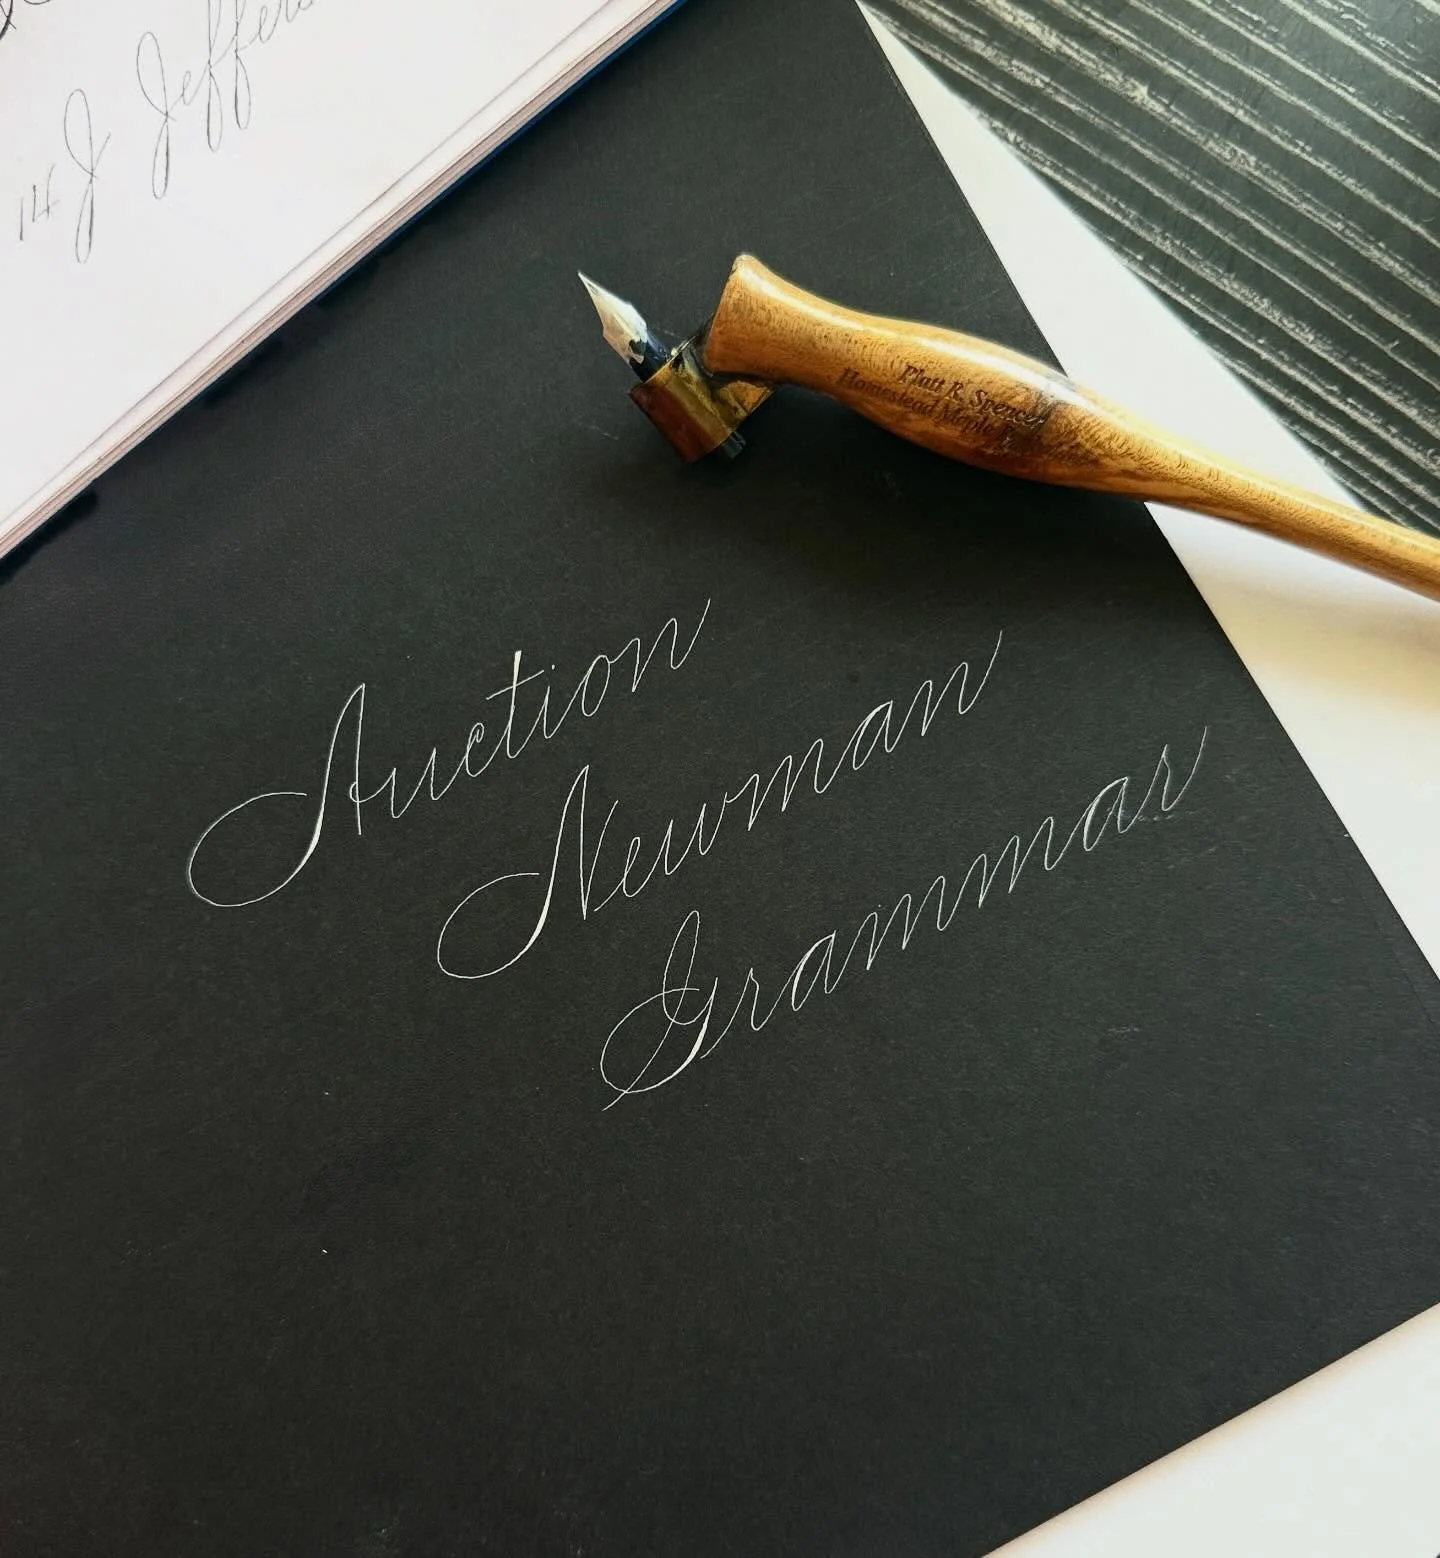 14 J Jeffers
Platt R. Spencer
Homestead Maple
Auction
Newman
Grammar